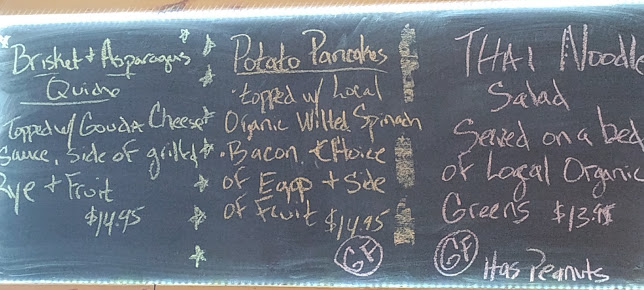 Brisket + Asparagus
Quiche
Topped w/ Gouda Cheese
Sauce, Side of grilled
Rye + Fruit
$14.95
Potato Pancakes
topped w/ Local
Organic Wilted Spinach
Bacon, Choice
of Eggs + Side
of Fruit $14.95
GF
THAI Noodle
Salad
Served on a bed
of Local Organic
Greens $13.95
GF Has Peanuts